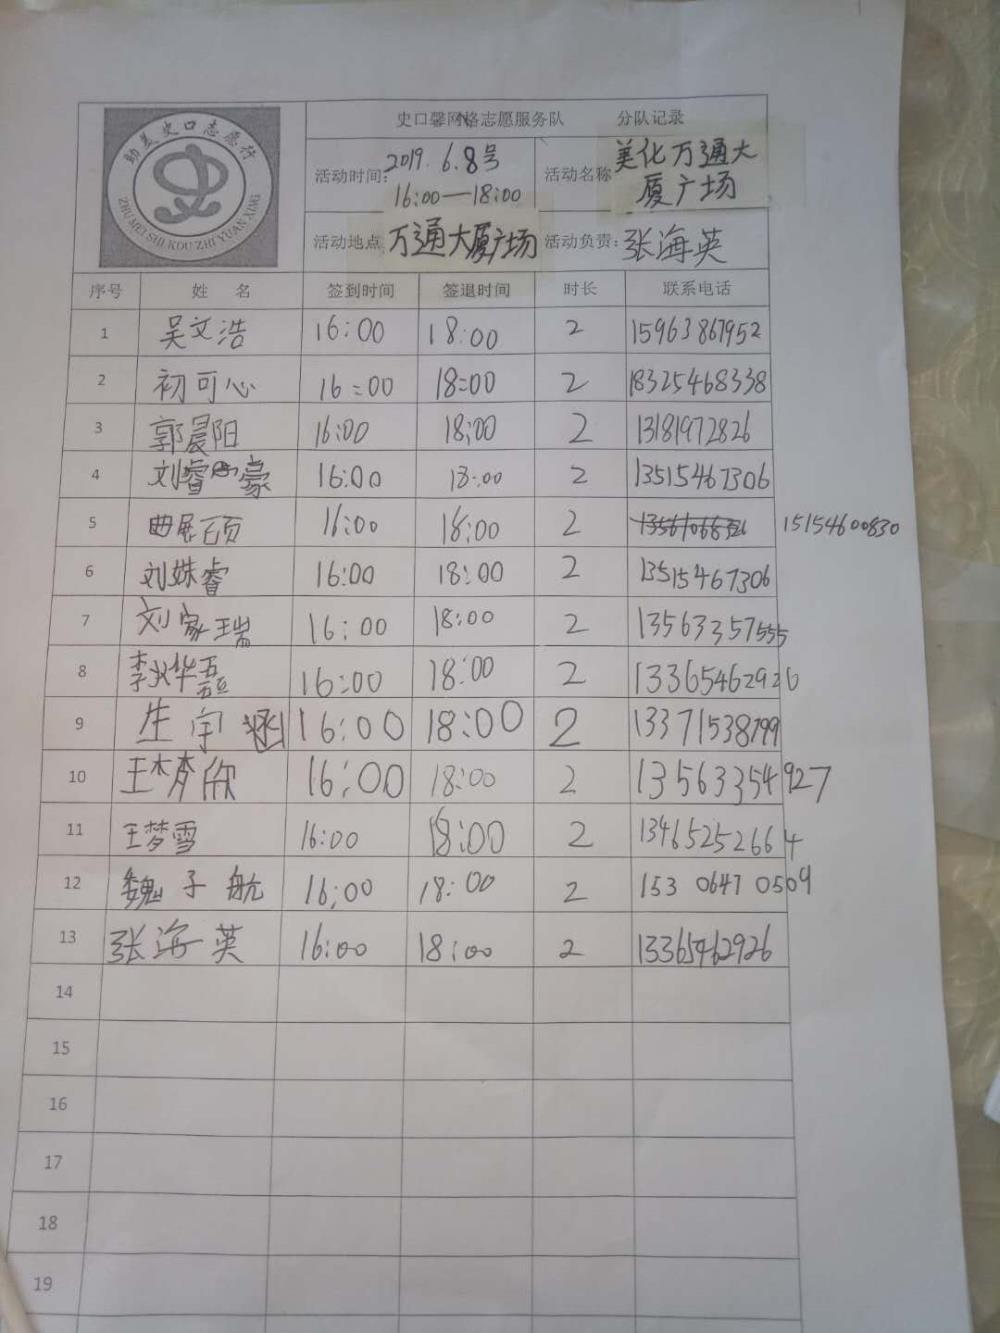 助美史口志愿行
ZHU MEI SHI KOU ZHI YUAN XING
史口馨网格志愿服务队 分队记录
活动时间: 2019.6.8号 16:00—18:00 活动名称 美化万通大厦广场
活动地点 万通大厦广场 活动负责: 张海英
序号 姓 名 签到时间 签退时间 时长 联系电话
1 吴文浩 16:00 18:00 2 15963867952
2 初可心 16:00 18:00 2 18325468338
3 郭晨阳 16:00 18:00 2 13181972826
4 刘睿豪 16:00 18:00 2 13515467306
5 曲展颐 16:00 18:00 2 15154600830
6 刘姝睿 16:00 18:00 2 13515467306
7 刘家瑞 16:00 18:00 2 13563357555
8 李 16:00 18:00 2 13365462926
9 生宇涵 16:00 18:00 2 13371538799
10 王梦欣 16:00 18:00 2 13563354927
11 王梦雪 16:00 18:00 2 13465252664
12 魏子航 16:00 18:00 2 15306470509
13 张海英 16:00 18:00 2 13365462926
14
15
16
17
18
19